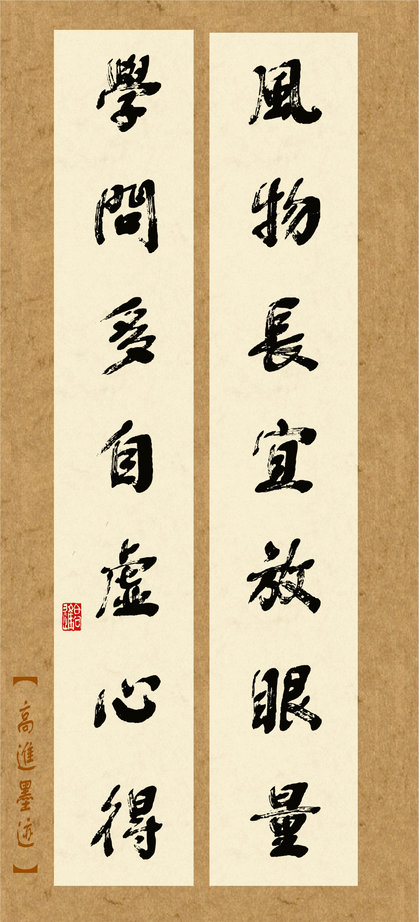 風物長宜放眼量
學問多自虛心得
【高進墨迹】